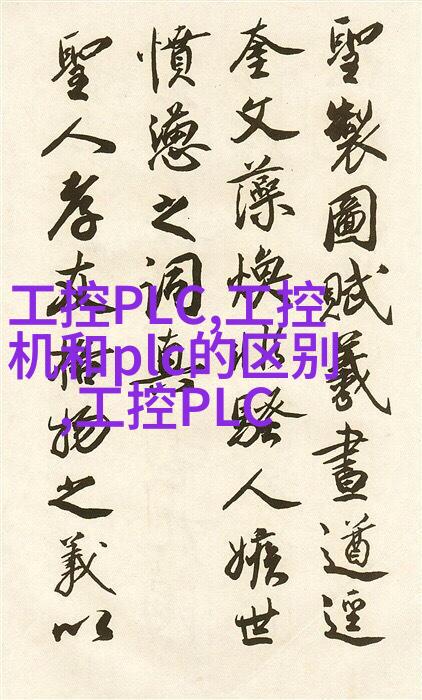 工控PLC,工控
机和plc的区别
,工控PLC
聖製圖賦羲畫遒逕
奎文藻煥騷人嫉世
憤懣之詞
聖人在物之義以